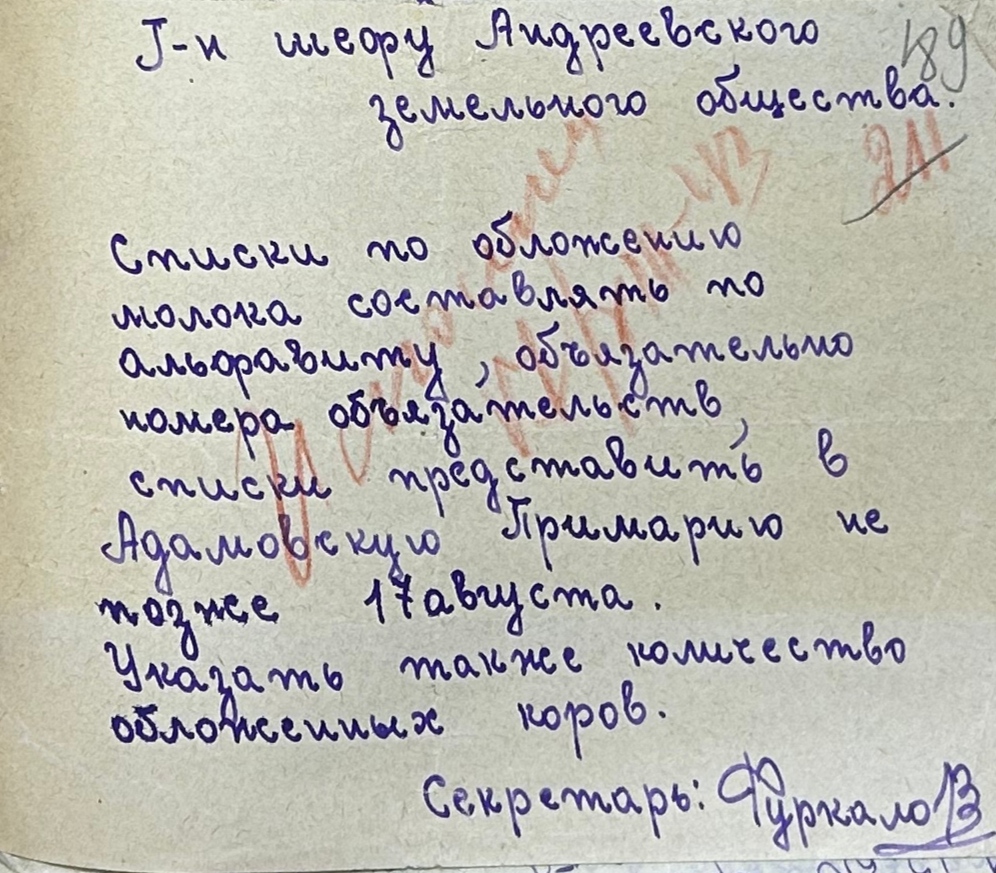 Г-н шефу Андреевского
189
земельного общества.
211
Списки по обложению
молока составлять по
альфавиту, объязательно
номера объязательств,
списки представить в
Адамовскую Примарию не
позже 17 августа.
Указать также количество
обложенных коров.
Секретарь: Фуркало В